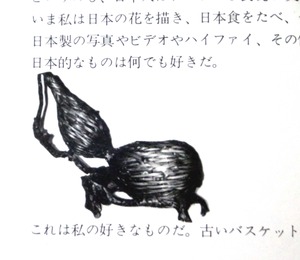 いま私は日本の花を描き、日本食をたべ、
日本製の写真やビデオやハイファイ、その
日本的なものは何でも好きだ。
これは私の好きなものだ。古いバスケット